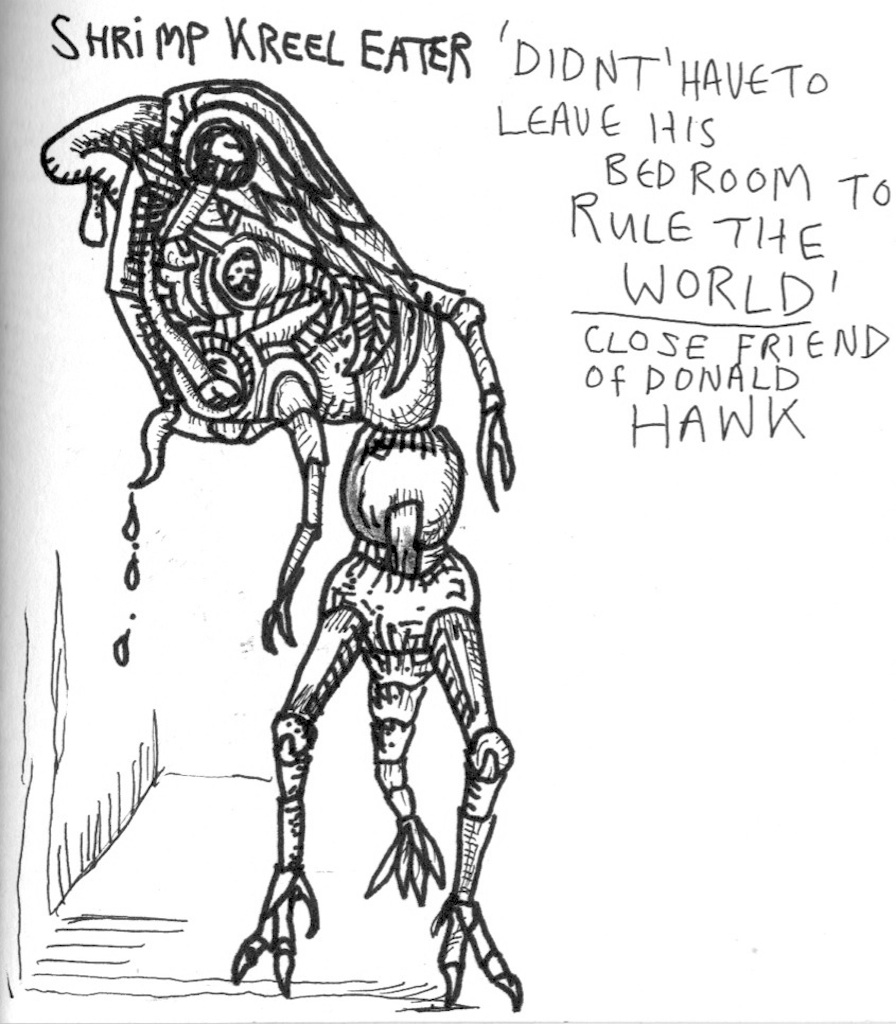 SHRiMP KREEL EATER
'DIDNT' HAVE TO
LEAVE HIS
BEDROOM TO
RULE THE
WORLD'
CLOSE FRIEND
Of DONALD
HAWK